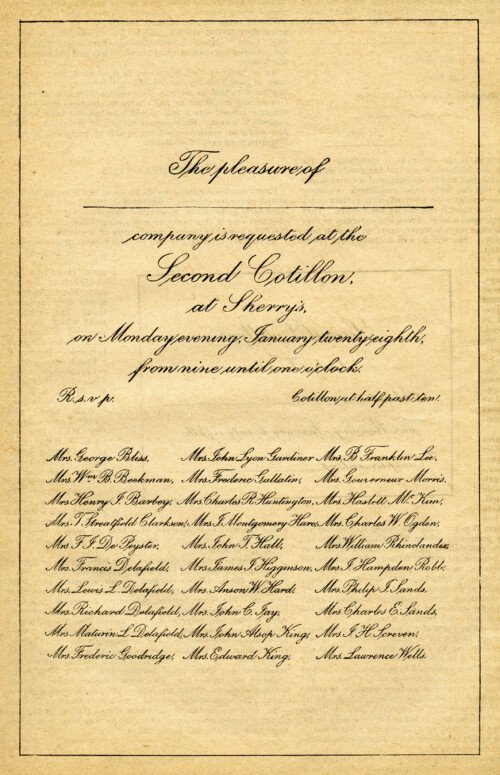 The pleasure of
company is requested at the
Second Cotillon,
at Sherry's,
on Monday evening, January twenty eighth,
from nine until one o'clock.
R.s.v.p. Cotillon at half past ten.
Mrs. George Bliss, Mrs. John Lyon Gardiner Mrs. B. Franklin Lee,
Mrs. Wm. B. Beekman, Mrs. Frederic Gallatin, Mrs. Gouverneur Morris,
Mrs. Henry I. Barbey, Mrs. Charles R. Huntington, Mrs. Haslett McKim,
Mrs. T. Streatfield Clarkson, Mrs. J. Montgomery Hare, Mrs. Charles W. Ogden,
Mrs. F. J. De Peyster, Mrs. John T. Hall, Mrs. William Rhinelander,
Mrs. Francis Delafield, Mrs. James J. Higginson, Mrs. J. Hampden Robb,
Mrs. Lewis L. Delafield, Mrs. Anson W. Hard, Mrs. Philip J. Sands,
Mrs. Richard Delafield, Mrs. John C. Jay, Mrs. Charles E. Sands,
Mrs. Maturin L. Delafield, Mrs. John Alsop King, Mrs. J. H. Screven,
Mrs. Frederic Goodridge, Mrs. Edward King, Mrs. Lawrence Wells.